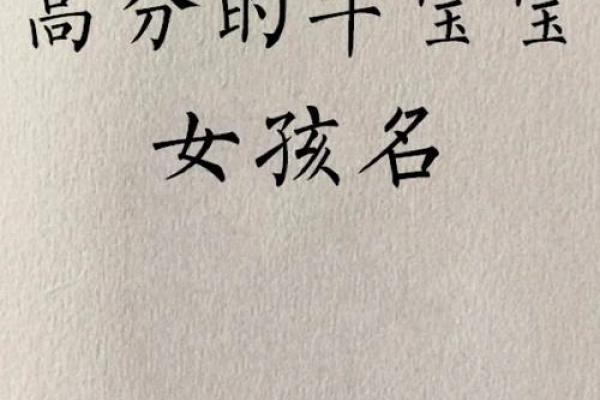 高分的宝宝
女孩名